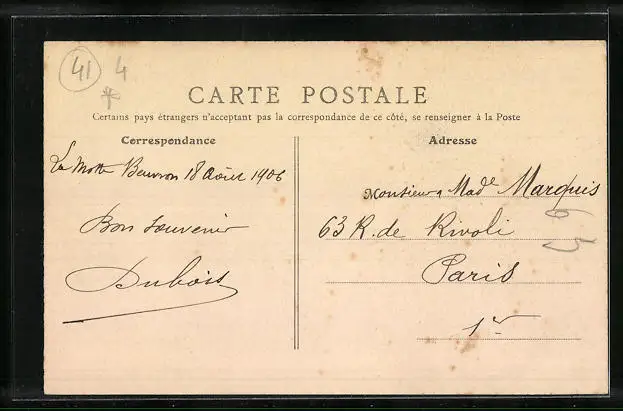 41 4
CARTE POSTALE
Certains pays étrangers n'acceptant pas la correspondance de ce côté, se renseigner à la Poste
Correspondance
La Motte Beuvron 18 Août 1906
Bon Souvenir
Dubois
Adresse
Monsieur & Made Marquis
63 R. de Rivoli
Paris
1er